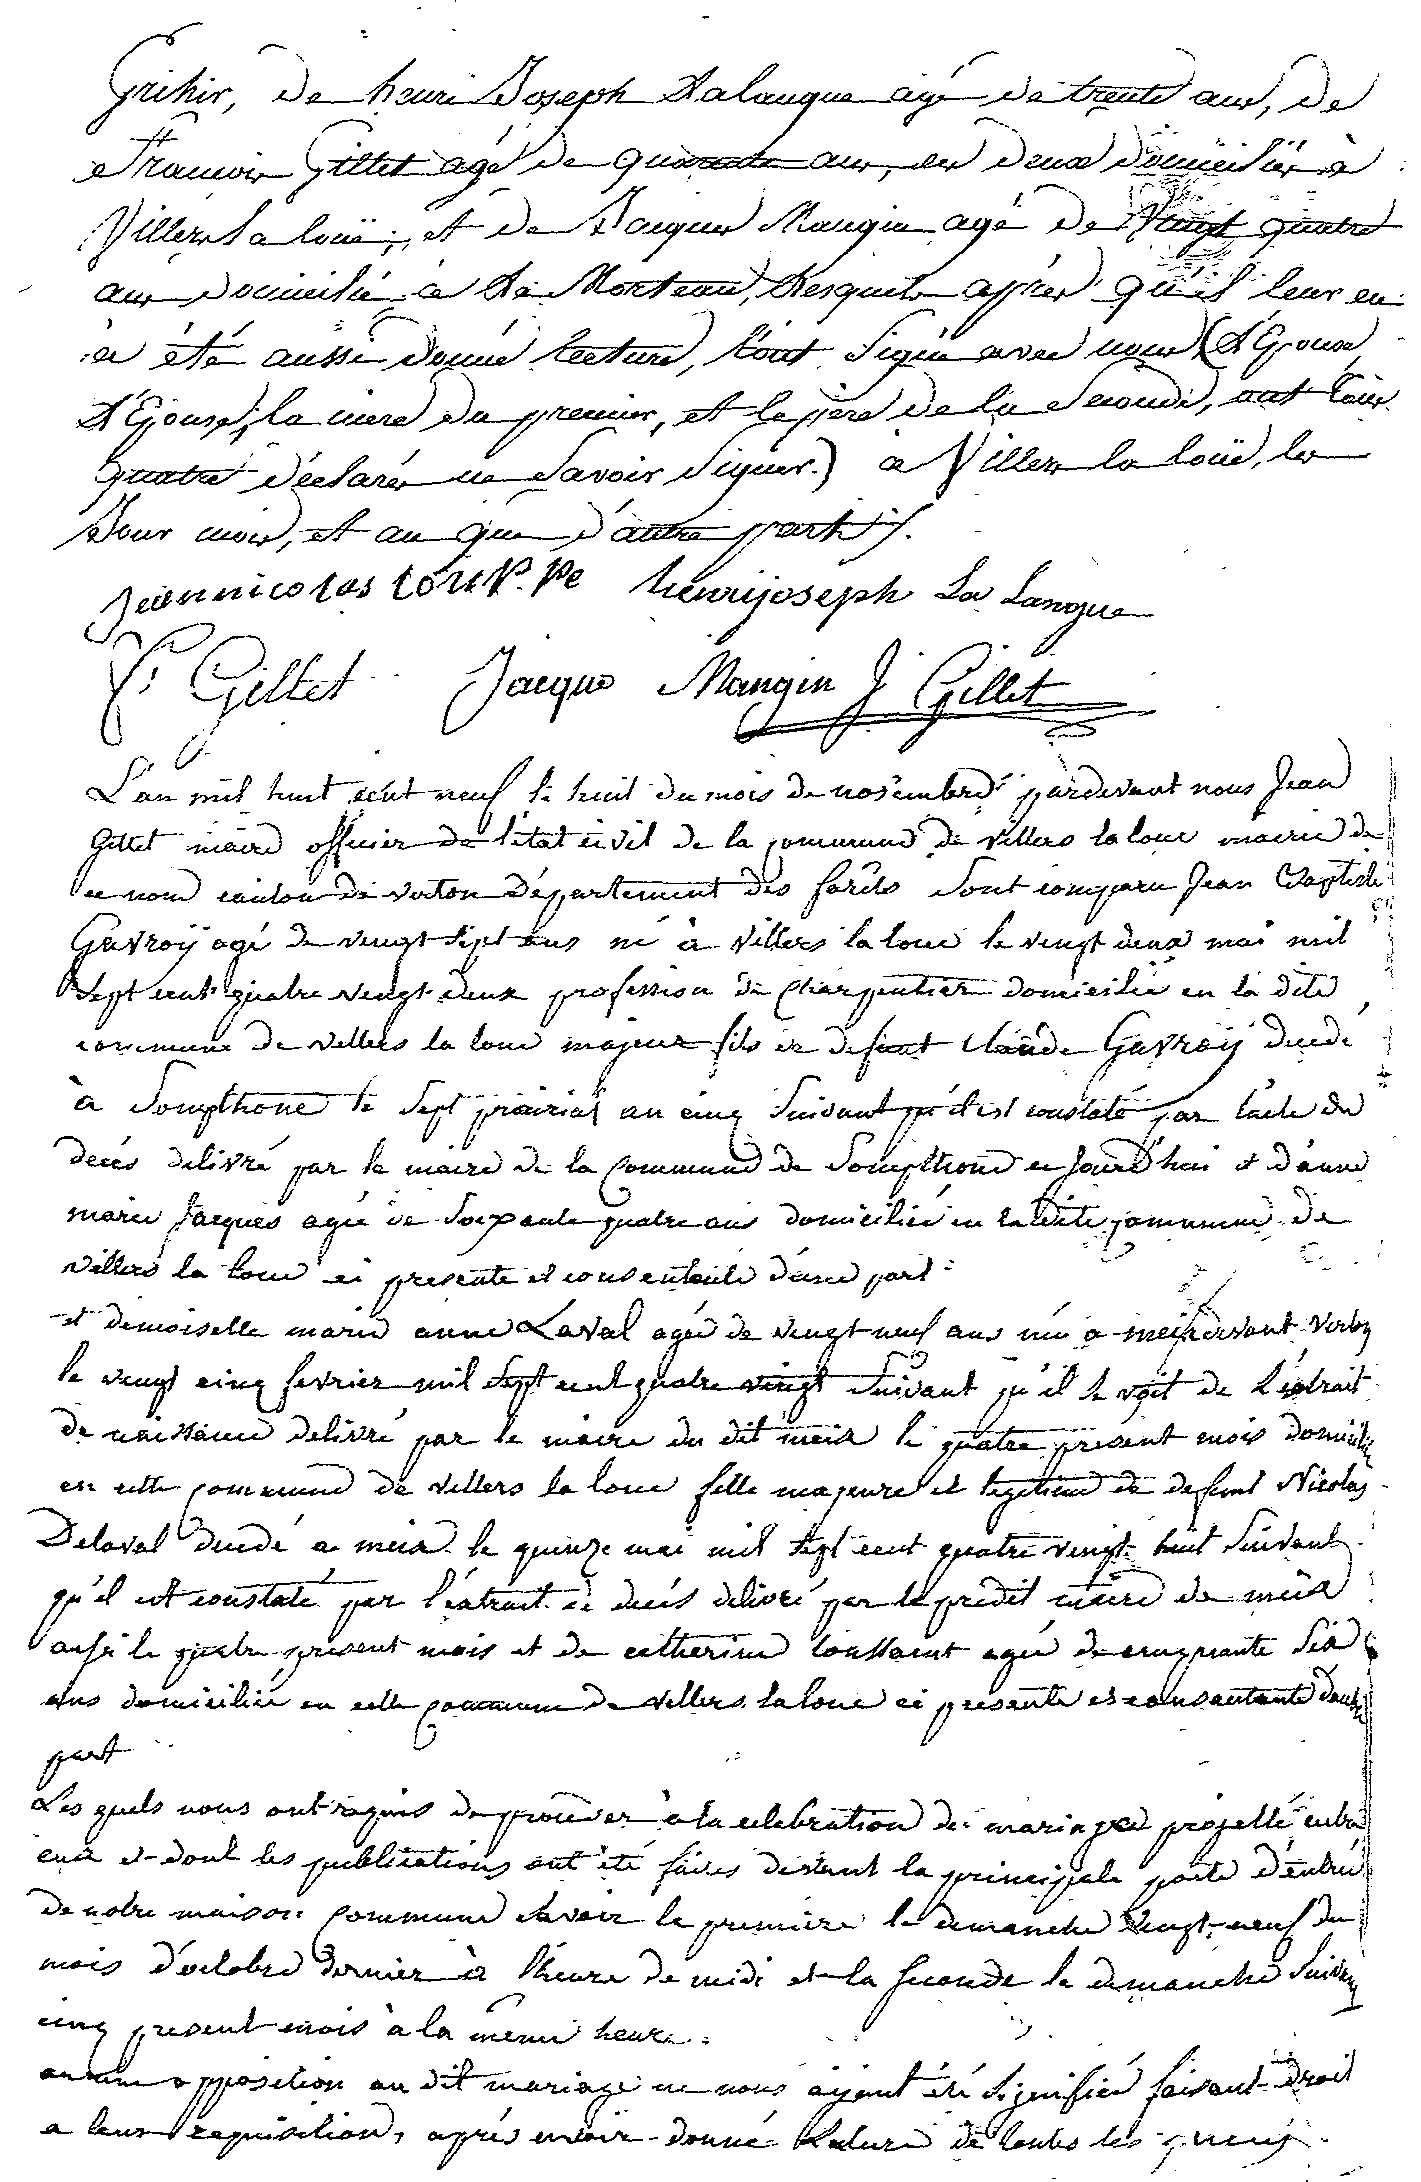 de henri Joseph Lalangue agé de trente ans, de
francois Gillet agé de quarante ans, les deux domiciliés à
Villers la loüe, et de Jacques Mangin agé de Vingt quatre
ans domicilié à La Morteau, Lesquels après qu'il leur en
a été aussi donné lecture, l'ont signé avec nous (L'Epoux,
L'Epouse, la mere du premier, et le père de la seconde, ont tous
quatre déclarés ne savoir signer.) à Villers la loüe, les
Jour mois, et an que d'autre part.
Jean nicolas touppe henrijoseph La Langue
f. Gillet Jacque Mangin J Gillet
L'an mil huit cent neuf le huit du mois de novembre pardevant nous Jean
Gillet maire officier de l'état civil de la commune de villers la loue mairie de
ce nom canton de virton Département des forêts sont comparu Jean Baptiste
Gavroÿ agé de vingt sept ans né à villers la loue le vingt deux mai mil
sept cent quatre vingt deux profession de charpentier domicilié en la dite
commune de villers la loue majeur fils de defunt Claude Gavroÿ decedé
à Sompthone le sept prairial an cinq suivant qu'il est constaté par l'acte du
decés delivré par le maire de la commune de Sompthone ce jourd'hui et d'anne
marie Jacques agée de soixante quatre ans domiciliée en la dite commune de
villers la loue ci presente et consentente d'une part
et demoiselle marie anne Laval agée de vingt neuf ans née a meix devant virton
le vingt cinq fevrier mil sept cent quatre vingt suivant qu'il se voit de l'extrait
de naissance delivré par le maire du dit meix le quatre present mois domiciliée
en cette commune de villers la loue fille majeure et legitime de defunt Nicolas
Delaval decedé a meix le quinze mai mil sept cent quatre vingt huit suivant
qu'il est constaté par l'extrait de decés delivré par le predit maire de meix
ausi le quatre present mois et de catherine toussaint agée de cinquante six
ans domiciliée en cette commune de villers la loue ci presente et consentante d'autre
part
Les quels nous ont requis de proceder à la celebration de mariage projetté entre
eux et dont les publications ont été faites devant la principale porte d'entrée
de notre maison commune savoir la premiere le dimanche vingt neuf du
mois d'octobre dernier à l'heure de midi et la seconde le dimanche suivant
cinq present mois à la même heure
aucune opposition au dit mariage ne nous ayant été signifiée faisant droit
a leur requisition, après avoir donné lecture de toutes les pieces